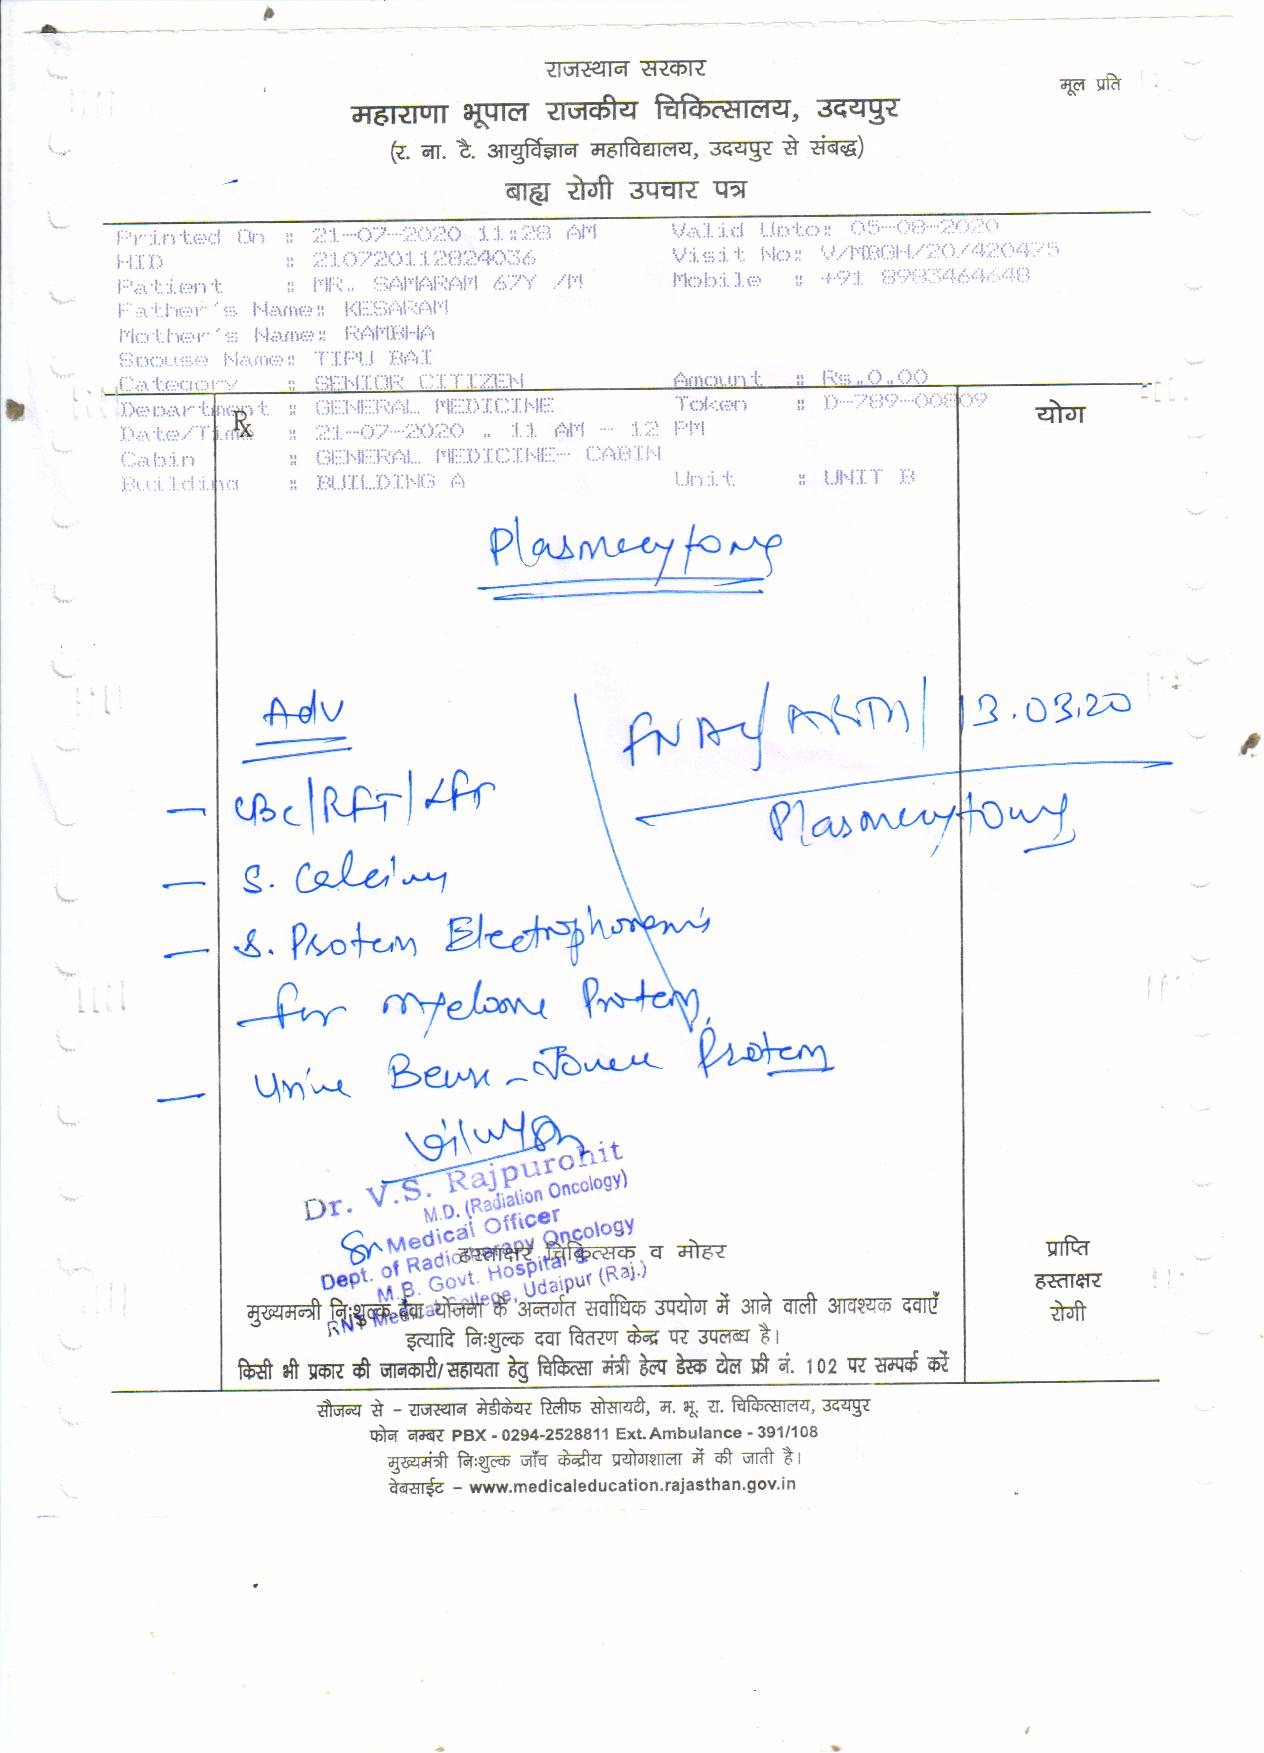 राजस्थान सरकार
मूल प्रति
महाराणा भूपाल राजकीय चिकित्सालय, उदयपुर
(र. ना. टै. आयुर्विज्ञान महाविद्यालय, उदयपुर से संबद्ध)
बाह्य रोगी उपचार पत्र
Printed On : 21-07-2020 11:28 AM Valid Upto: 05-08-2020
HID : 210720112824036 Visit No: V/MBGH/20/420475
Patient : MR. SAMARAM 67Y /M Mobile : +91 8983464648
Father's Name: KESARAM
Mother's Name: RAMBHA
Spouse Name: TIPU BAI
Category : SENIOR CITIZEN Amount : Rs.0.00
Department : GENERAL MEDICINE Token : D-789-00809
Rx
योग
Date/Time : 21-07-2020 . 11 AM - 12 PM
Cabin : GENERAL MEDICINE- CABIN
Building : BUILDING A Unit : UNIT B
Plasmacytoma
Adv
FNAC/ /13.03.20
Plasmacytoma
- CBC/RFT/LFT
- S. Calcium
- S. Protein Electrophoresis
for myeloma Protein
- Urine Bence-Jones Protein
Dr. V.S. Rajpurohit
M.D. (Radiation Oncology)
Medical Officer
Dept. of Radiotherapy Oncology
M.B. Govt. Hospital &
RNT Medical College, Udaipur (Raj.)
हस्ताक्षर चिकित्सक व मोहर
प्राप्ति
हस्ताक्षर
रोगी
मुख्यमन्त्री निःशुल्क दवा योजना के अन्तर्गत सर्वाधिक उपयोग में आने वाली आवश्यक दवाएँ
इत्यादि निःशुल्क दवा वितरण केन्द्र पर उपलब्ध है।
किसी भी प्रकार की जानकारी/सहायता हेतु चिकित्सा मंत्री हेल्प डेस्क टोल फ्री नं. 102 पर सम्पर्क करें
सौजन्य से - राजस्थान मेडीकेयर रिलीफ सोसायटी, म. भू. रा. चिकित्सालय, उदयपुर
फोन नम्बर PBX - 0294-2528811 Ext. Ambulance - 391/108
मुख्यमंत्री निःशुल्क जाँच केन्द्रीय प्रयोगशाला में की जाती है।
वेबसाईट - www.medicaleducation.rajasthan.gov.in